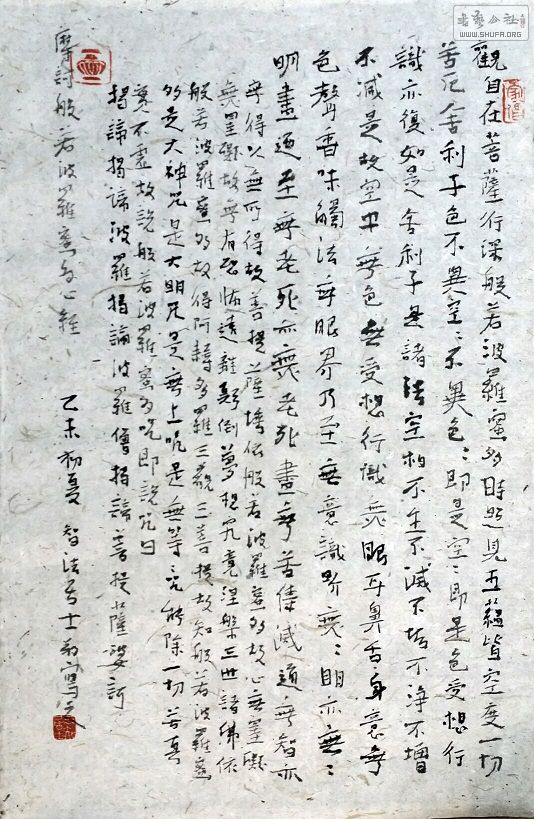 觀自在菩薩行深般若波羅蜜多時照見五蘊皆空度一切
苦厄舍利子色不異空〻不異色〻即是空〻即是色受想行
識亦復如是舍利子是諸法空相不生不滅不垢不淨不增
不減是故空中無色無受想行識無眼耳鼻舌身意無
色聲香味觸法無眼界乃至無意識界無〻明亦無〻
明盡乃至無老死亦無老死盡無苦集滅道無智亦
無得以無所得故菩提薩埵依般若波羅蜜多故心無罣礙
無罣礙故無有恐怖遠離顛倒夢想究竟涅槃三世諸佛依
般若波羅蜜多故得阿耨多羅三藐三菩提故知般若波羅蜜
多是大神咒是大明咒是無上咒是無等咒能除一切苦真
實不虛故說般若波羅蜜多咒即說咒曰
揭諦揭諦波羅揭諦波羅僧揭諦菩提薩婆訶
摩訶般若波羅蜜多心經
乙未初夏 智法居士敬寫
书艺公社
WWW.SHUFA.ORG